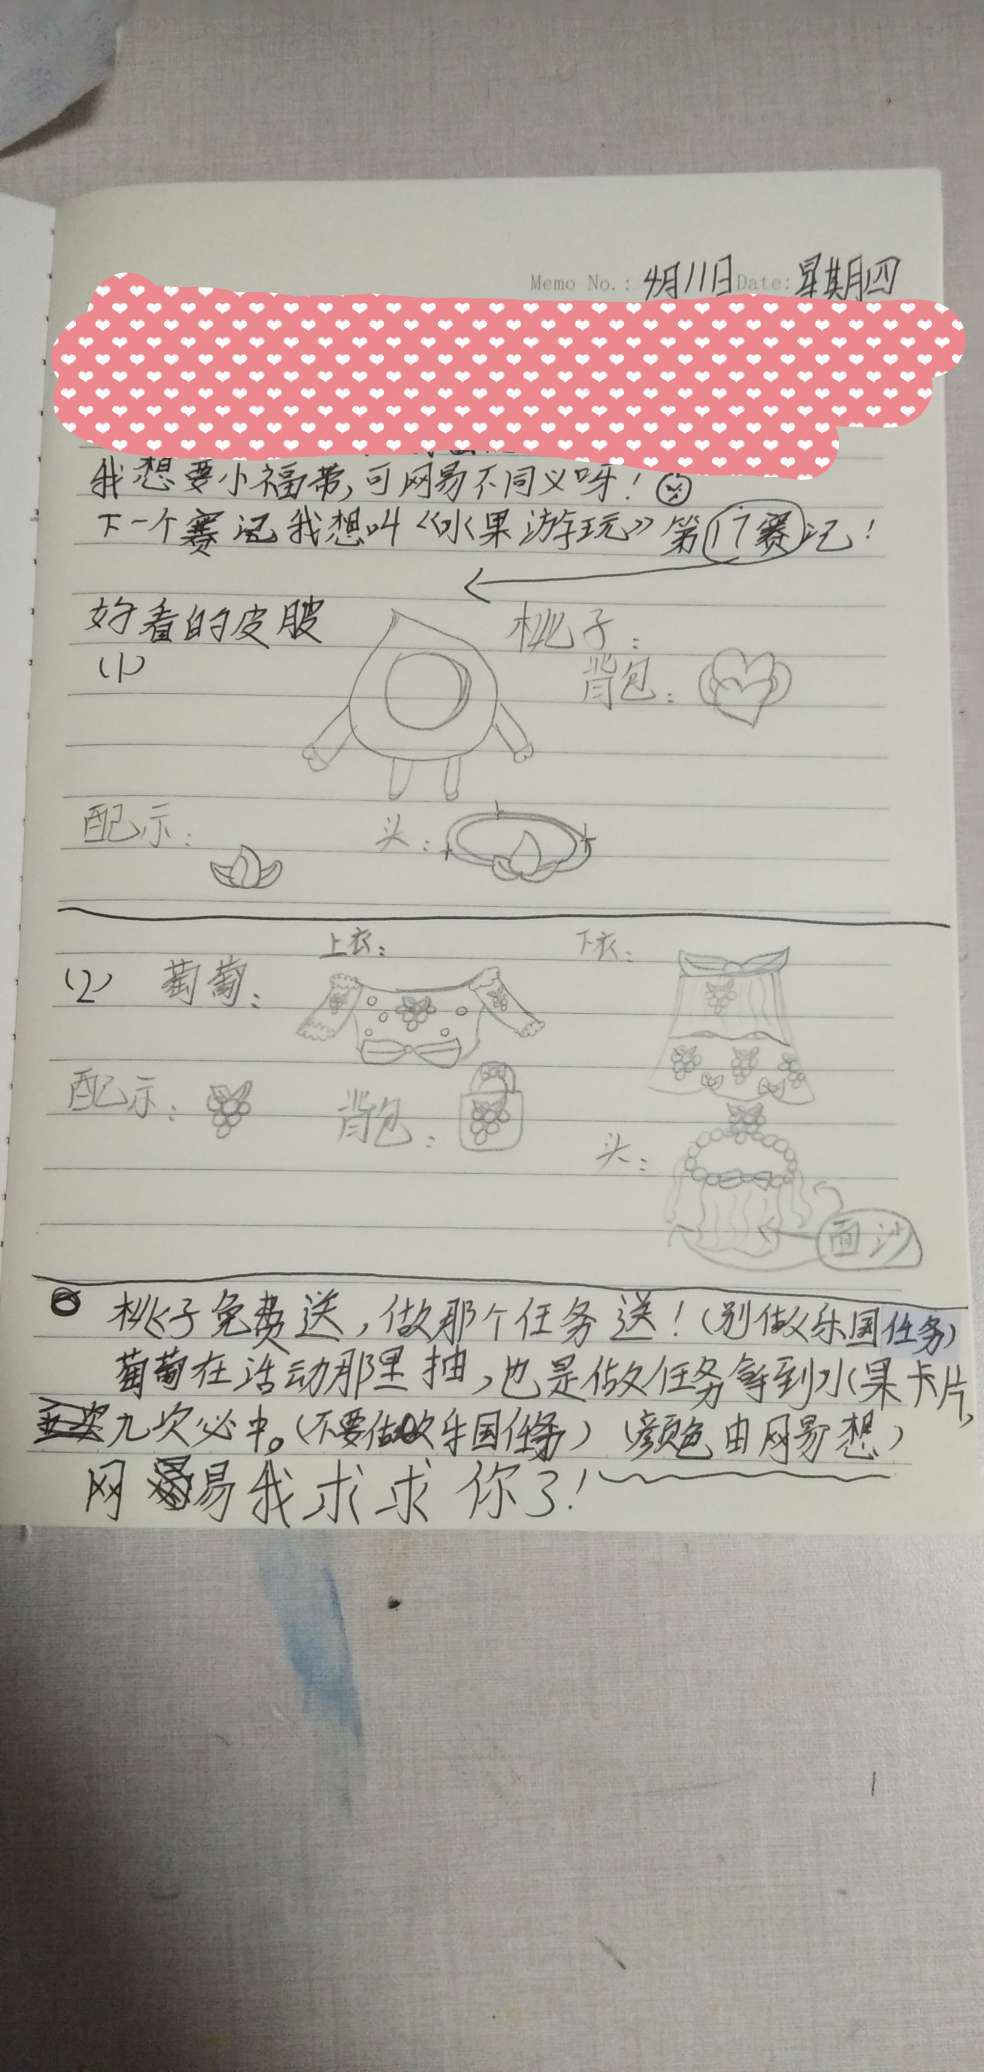 Memo No.: 4月11日 Date: 星期四
我想要小福带,可网易不同义呀!
下一个赛记我想叫《水果游玩》第17赛记!
好看的皮肤
(1)
桃子:
背包:
配示:
头:
(2) 葡萄:
上衣:
下衣:
配示:
背包:
头:
面沙
桃子免费送,做那个任务送!(别做乐国任务)
葡萄在活动那里抽,也是做任务等到水果卡片,
九次必中。(不要做乐国任务)(颜色由网易想)
网易我求求你了!